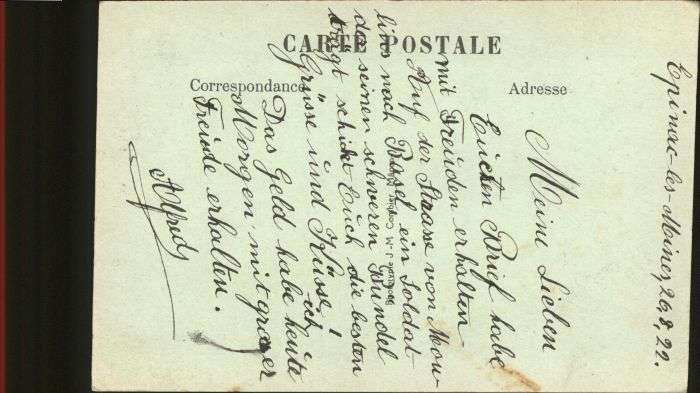 CARTE POSTALE
Correspondance
Adresse
Epinac-les-Mines, 26,8,22.
Meine Lieben
Brief habe
mit Freuden erhalten
Auf der Strasse von Mou-
lins nach Basel ein Soldat
der seinen schweren Bündel
trägt schickt Euch die besten
Grüsse und Küsse!
Das Geld habe ich heute
Morgen mit grosser
Freude erhalten.
Alfred